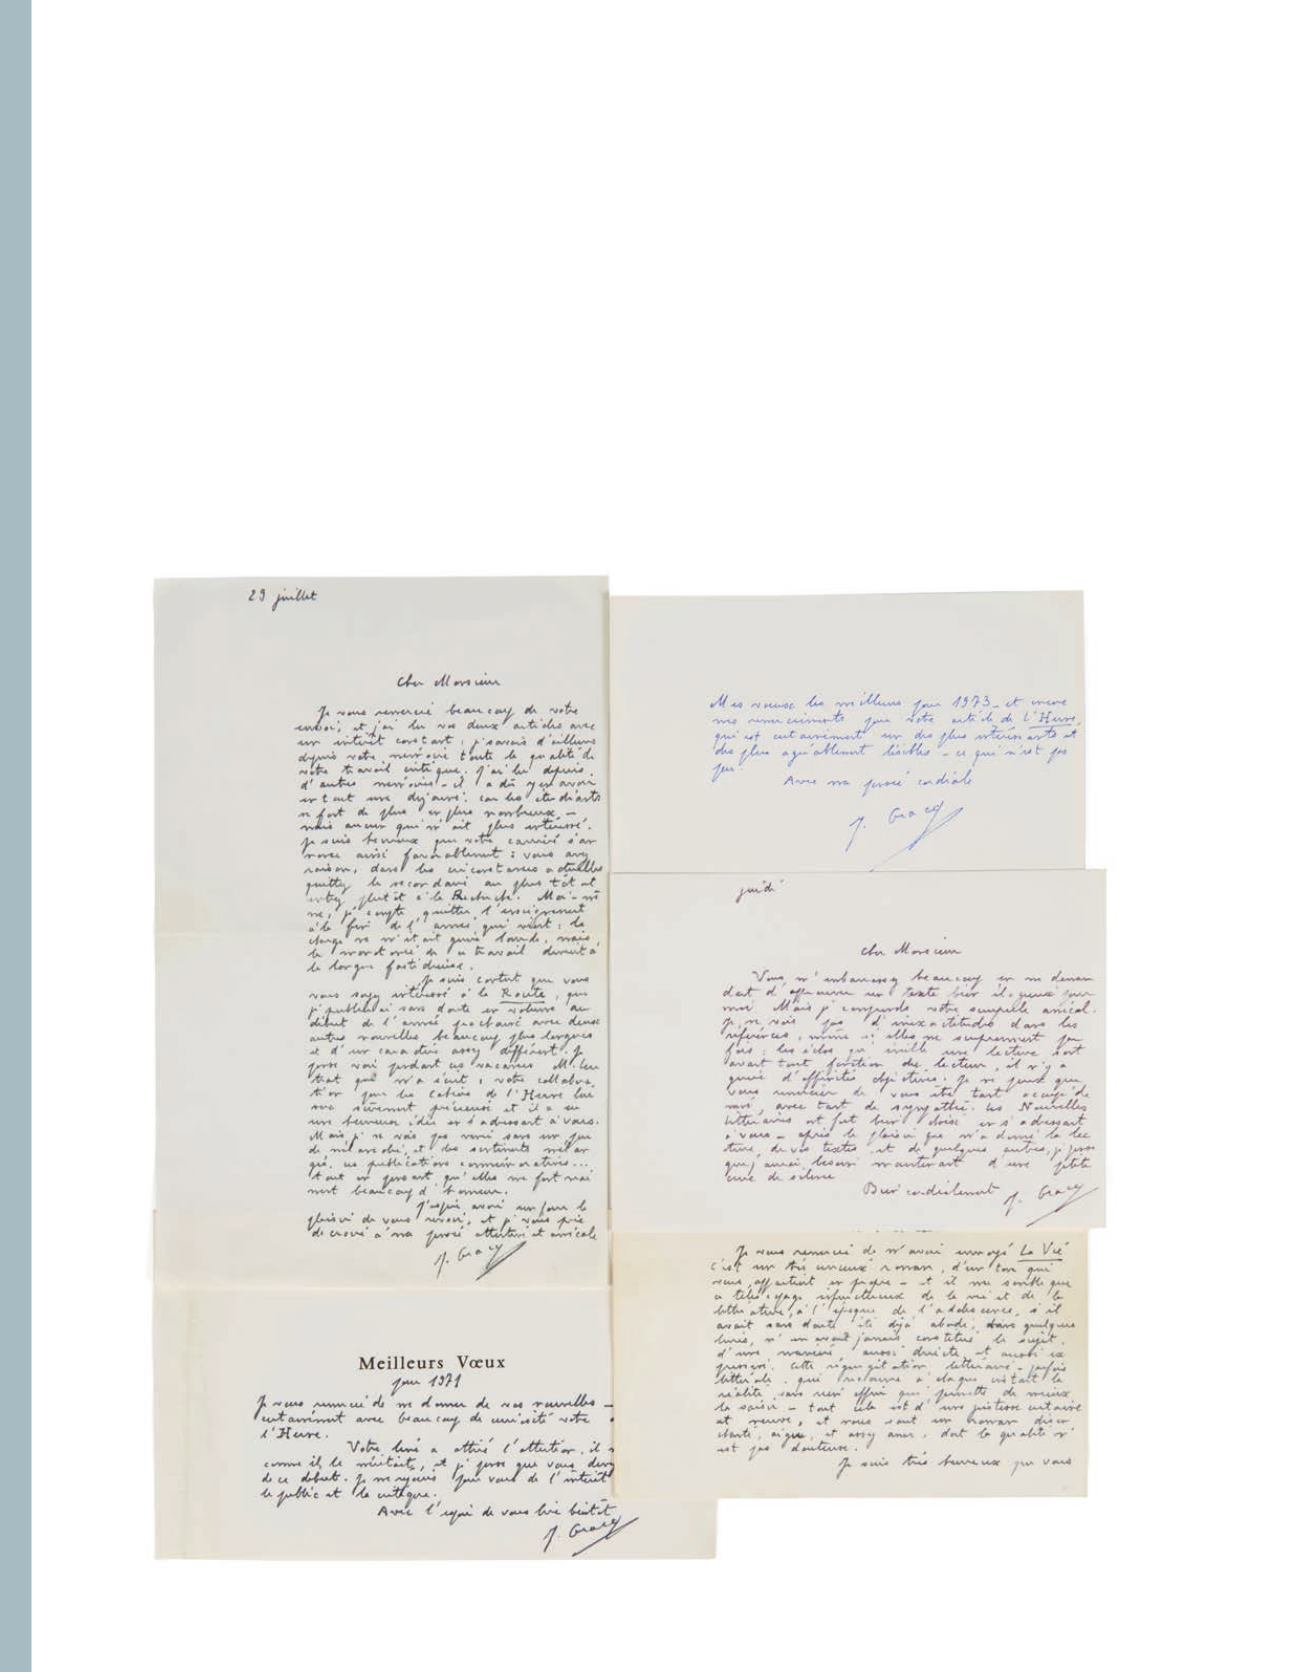 29 juillet
Cher Monsieur
Je vous remercie beaucoup de votre
envoi, et j'ai lu vos deux articles avec
un intérêt constant ; je savais d'ailleurs
depuis votre mémoire toute la qualité de
votre travail critique. J'ai lu depuis
d'autres mémoires – il a dû y en avoir
en tout une dizaine : car les étudiants
se font de plus en plus nombreux –
mais aucun qui m'ait plus intéressé.
Je suis heureux que votre carrière s'an
nonce aussi favorablement : vous avez
raison, dans les circonstances actuelles
quittez le secondaire au plus tôt et
entrez plutôt à la Recherche. Moi-mê
me, je compte quitter l'enseignement
à la fin de l'année qui vient : la
charge ne m'était guère lourde, mais
la monotonie de ce travail devient à
la longue fastidieuse.
Je suis content que vous
vous soyez intéressé à la Route, que
je publierai sans doute en volume au
début de l'année prochaine avec deux
autres nouvelles beaucoup plus longues
et d'un caractère assez différent. Je
pense voir pendant ces vacances
qui m'a écrit : votre collabora
tion pour les Cahiers de l'Herne lui
sera sûrement précieuse et il a eu
une heureuse idée en s'adressant à vous.
Mais je ne vois pas venir sans un peu
de mélancolie, et des sentiments mélan
gés, ces publications commémoratives...
tout en pensant qu'elles me font vrai
ment beaucoup d'honneur.
J'espère avoir un jour le
plaisir de vous revoir, et je vous prie
de croire à ma pensée attentive et amicale
J. Gracq
Mes voeux les meilleurs pour 1973 – et encore
mes remerciements pour votre article de l'Herne,
qui est certainement un des plus intéressants et
des plus agréablement lisibles – ce qui n'est pas
peu.
Avec ma pensée cordiale
J. Gracq
jeudi
Cher Monsieur
Vous m'embarrassez beaucoup en me deman
dant d'apprécier un texte bien élogieux pour
moi. Mais je comprends votre scrupule amical.
Je ne vois pas d'inexactitude dans les
références, même si elles me surprennent par
fois : les échos qu'éveille une lecture sont
avant tout fonction du lecteur, il n'y a
guère d'affinités objectives. Je ne peux que
vous remercier de vous être tant occupé de
moi, avec tant de sympathie. Les Nouvelles
littéraires ont fait bien choisi en s'adressant
à vous – après le plaisir que m'a donné la lec
ture de vos textes et de quelques autres, je pense
que j'aurai besoin maintenant d'une petite
cure de silence
Bien cordialement J. Gracq
Meilleurs Vœux
pour 1971
Je vous remercie de me donner de vos nouvelles –
certainement avec beaucoup de curiosité votre
l'Herne.
Votre livre a attiré l'attention, il
comme il le méritait, et je pense que vous
de ce début. Je me réjouis pour vous de l'intérêt
le public et la critique.
Avec l'espoir de vous lire bientôt
J. Gracq
Je vous remercie de m'avoir envoyé La Vie
c'est un très curieux roman, d'un ton qui
vous appartient en propre – et il me semble que
ce télescopage irrespectueux de la vie et de la
littérature, à l'époque de l'adolescence, s'il
avait sans doute été déjà abordé, dans quelques
livres, n'en avait jamais constitué le sujet
d'une manière aussi directe et aussi ex
pressive. Cette régurgitation littéraire – parfois
littérale – qui recouvre à chaque instant la
réalité sans rien offrir qui permette de mieux
la saisir – tout cela est d'une justesse certaine
et neuve, et nous vaut un roman
aigu, et assez amer, dont la qualité n'
est pas douteuse.
Je suis très heureux que vous